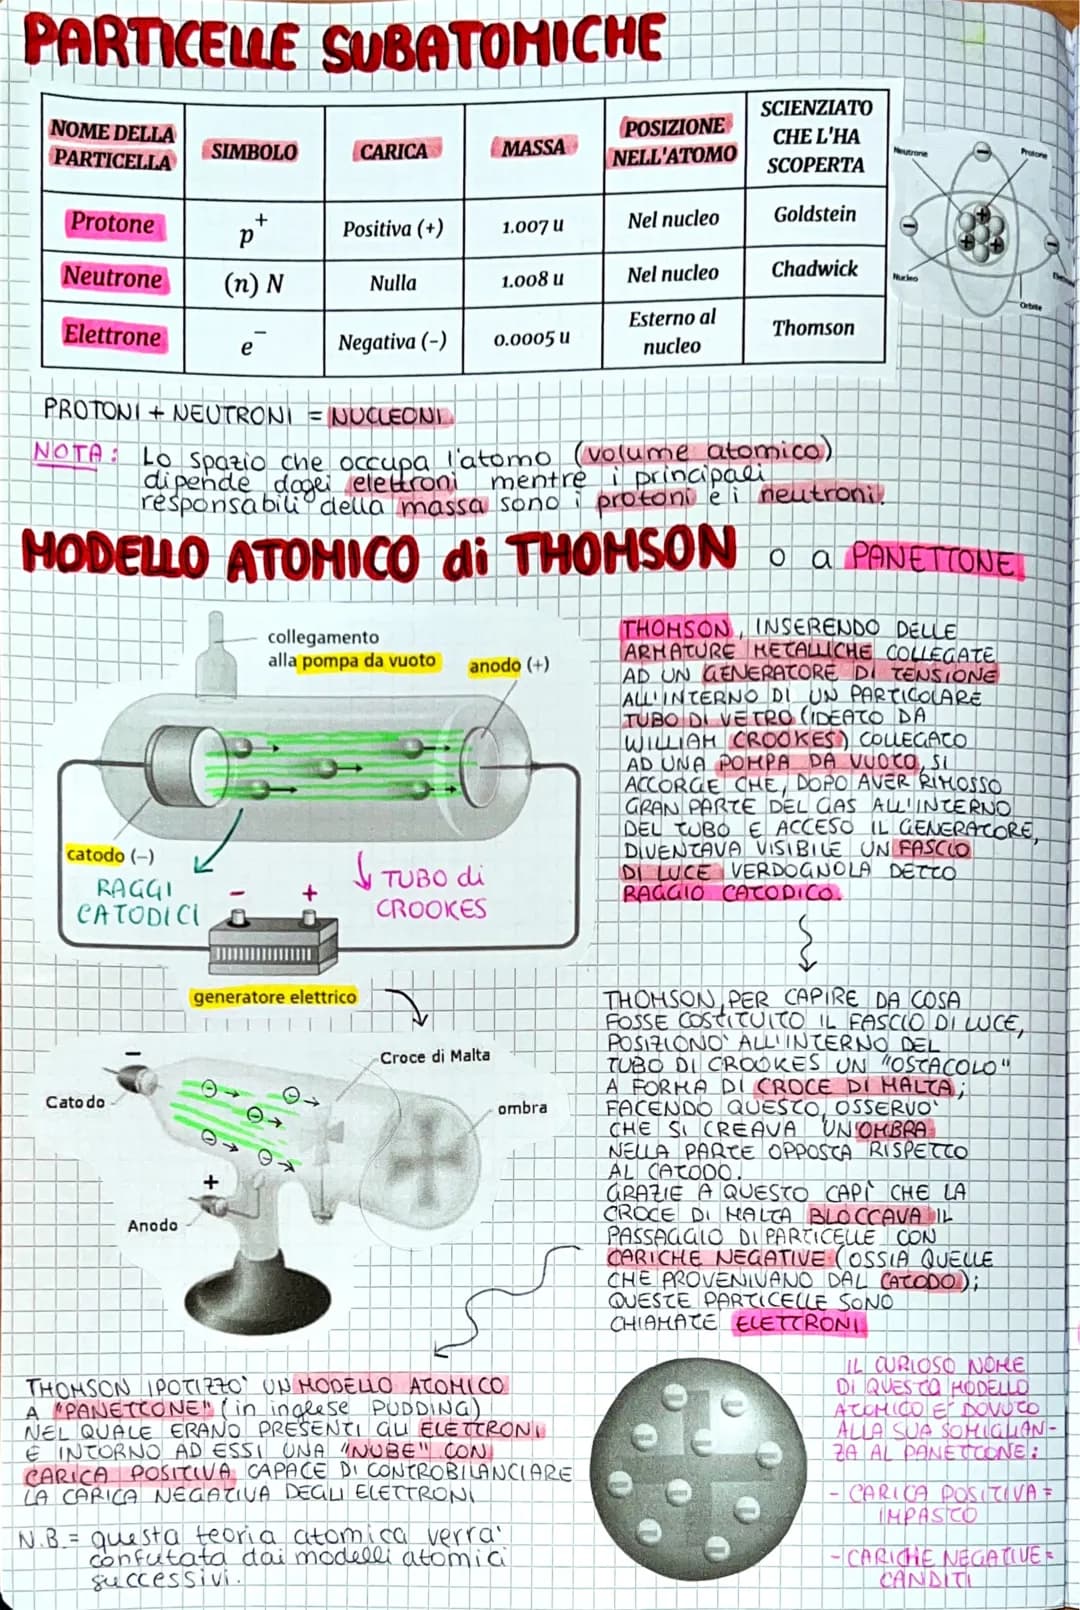 PARTICELLE SUBATOMICHE
NOME DELLA PARTICELLA SIMBOLO CARICA MASSA POSIZIONE NELL'ATOMO SCIENZIATO CHE L'HA SCOPERTA
Protone p+ Positiva (+) 1.007 u Nel nucleo Goldstein
Neutrone (n) N Nulla 1.008 u Nel nucleo Chadwick
Elettrone e− Negativa (-) 0.0005 u Esterno al nucleo Thomson
Neutrone
Protone
Nucleo
Orbite
PROTONI + NEUTRONI = NUCLEONI
NOTA: Lo spazio che occupa l'atomo (volume atomico)
dipende dagli elettroni mentre i principali
responsabili della massa sono i protoni e i neutroni.
MODELLO ATOMICO di THOMSON o a PANETTONE
collegamento
alla pompa da vuoto
anodo (+)
catodo (-)
RAGGI
CATODICI
TUBO di
CROOKES
- +
generatore elettrico
THOMSON, INSERENDO DELLE
ARMATURE METALLICHE COLLEGATE
AD UN GENERATORE DI TENSIONE
ALL'INTERNO DI UN PARTICOLARE
TUBO DI VETRO (IDEATO DA
WILLIAM CROOKES) COLLEGATO
AD UNA POMPA DA VUOTO, SI
ACCORGE CHE, DOPO AVER RIMOSSO
GRAN PARTE DEL GAS ALL'INTERNO
DEL TUBO E ACCESO IL GENERATORE,
DIVENTAVA VISIBILE UN FASCIO
DI LUCE VERDOGNOLA DETTO
RAGGIO CATODICO.
-
Croce di Malta
Catodo
ombra
+
Anodo
THOMSON, PER CAPIRE DA COSA
FOSSE COSTITUITO IL FASCIO DI LUCE,
POSIZIONO' ALL'INTERNO DEL
TUBO DI CROOKES UN "OSTACOLO"
A FORMA DI CROCE DI MALTA;
FACENDO QUESTO, OSSERVO'
CHE SI CREAVA UN'OMBRA
NELLA PARTE OPPOSTA RISPETTO
AL CATODO.
GRAZIE A QUESTO CAPÌ CHE LA
CROCE DI MALTA BLOCCAVA IL
PASSAGGIO DI PARTICELLE CON
CARICHE NEGATIVE (OSSIA QUELLE
CHE PROVENIVANO DAL CATODO);
QUESTE PARTICELLE SONO
CHIAMATE ELETTRONI
THOMSON IPOTIZZO' UN MODELLO ATOMICO
A "PANETTONE" (in inglese PUDDING)
NEL QUALE ERANO PRESENTI GLI ELETTRONI
E INTORNO AD ESSI UNA "NUBE" CON
CARICA POSITIVA CAPACE DI CONTROBILANCIARE
LA CARICA NEGATIVA DEGLI ELETTRONI
N.B.= questa teoria atomica verra'
confutata dai modelli atomici
successivi.
IL CURIOSO NOME
DI QUESTO MODELLO
ATOMICO E' DOVUTO
ALLA SUA SOMIGLIAN-
ZA AL PANETTONE:
- CARICA POSITIVA =
IMPASTO
- CARICHE NEGATIVE =
CANDITI